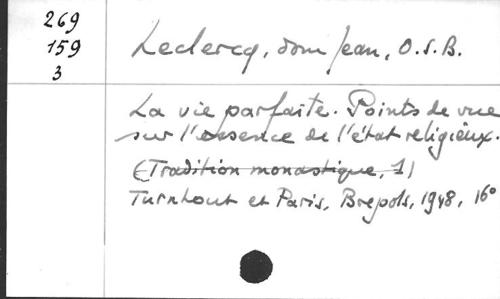 269
159
3
Leclercq, dom Jean, O.S.B.
La vie parfaite. Points de vue
sur l'essence de l'état religieux.
(Tradition monastique, 1)
Turnhout et Paris, Brepols, 1948, 16°